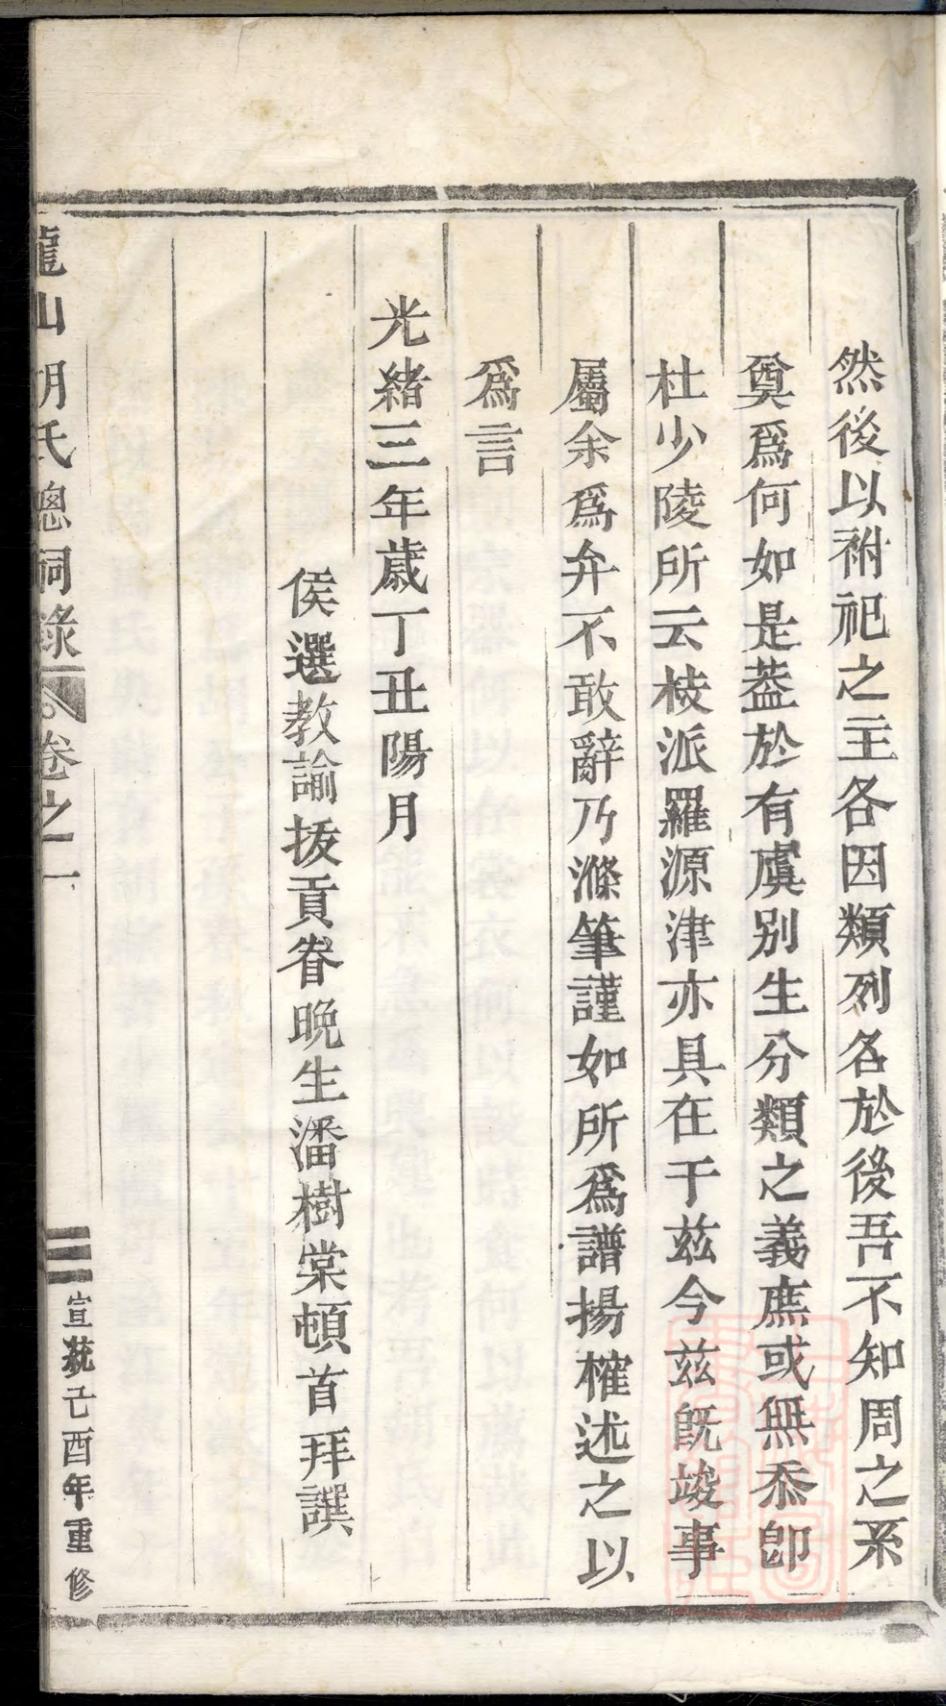 然後以祔祀之主各因類列名於後吾不知周之系
奠爲何如是葢於有虞别生分類之義庶或無忝卽
杜少陵所云枝派羅源津亦具在于兹今兹既竣事
屬余爲弁不敢辭乃滌筆謹如所爲譜揚榷述之以
爲言
光緒三年歲丁丑陽月
侯選教諭拔貢眷晚生潘樹棠頓首拜譔
龍山胡氏總祠錄 卷之一
三 宣統己酉年重修